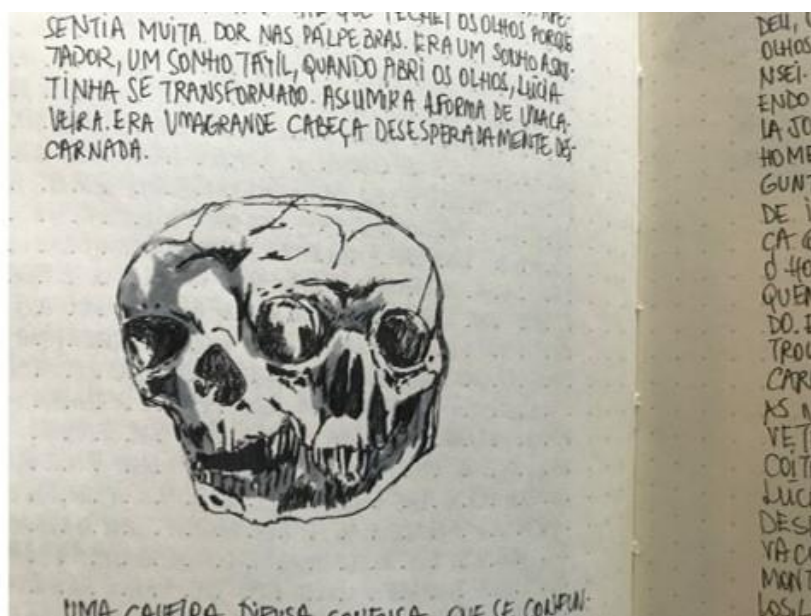 QUE FECHEI OS OLHOS PORQUE
SENTIA MUITA DOR NAS PÁLPEBRAS. ERA UM SONHO ASSUS-
TADOR, UM SONHO TÁTIL, QUANDO ABRI OS OLHOS, LÚCIA
TINHA SE TRANSFORMADO. ASSUMIRA A FORMA DE UMA CA-
VEIRA. ERA UMA GRANDE CABEÇA DESESPERADAMENTE DES-
CARNADA.
UMA CAVEIRA DIFUSA, CONFUSA, QUE SE CONFUN-
DEU,
OLHOS
NSEI.
ENDO
LA JO
HOME
GUNT
DE
ÇA
O HO
QUEM
DO.
TROU
CAR
AS
VET
COIT
LÚC
DES
VA CO
MONT
LOS